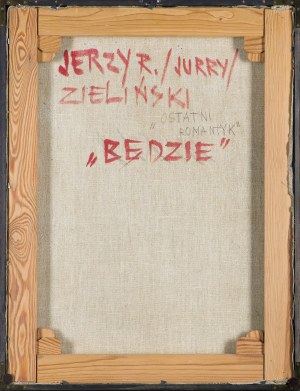 JERZY R. /JURRY/
ZIELIŃSKI
"OSTATNI
ROMANTYK"
„BĘDZIE”